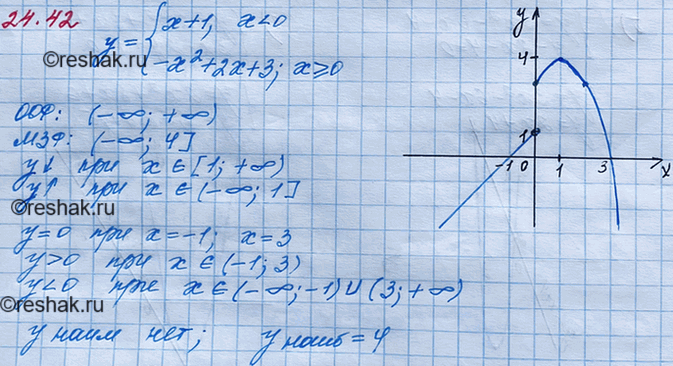 24.42
y = { x+1, x<0
-x²+2x+3; x≥0
ООФ: (-∞; +∞)
МЗФ: (-∞; 4]
y↓ при x ∈ [1; +∞)
y↑ при x ∈ (-∞; 1]
©reshak.ru
y=0 при x=-1; x=3
y>0 при x ∈ (-1; 3)
y<0 при x ∈ (-∞; -1) ∪ (3; +∞)
©reshak.ru
y наим нет; y наиб = 4
©reshak.ru
y
4
1
-1 0 1 3 x